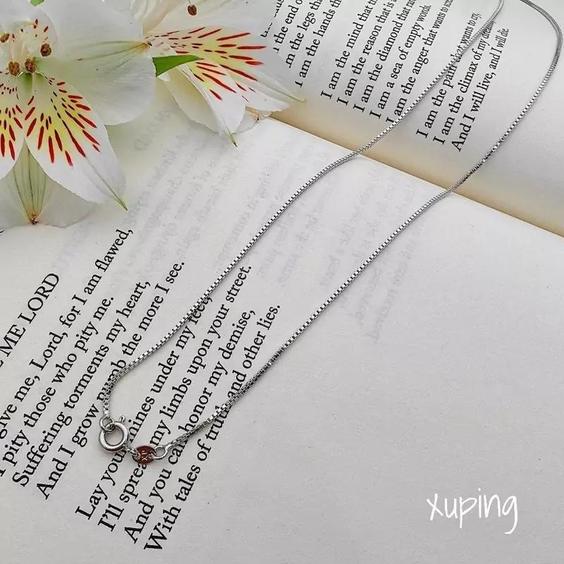 ME LORD
give me, Lord, for I am flawed,
I pity those who pity me.
Suffering torments my heart,
And I grow the more I see.
Lay your mines under my feet,
I'll spread my limbs upon your street.
And you can honor my demise,
With tales of truth and other lies.
the end
I am the legs th
I am the hands
I am the mind that tr
I am the reason that is
I am the diamond that
I am a sea of empty words.
I am the anger that wants to
I am the pain that wants to
I am the climax of my de
And I will live, and I will die
xuping